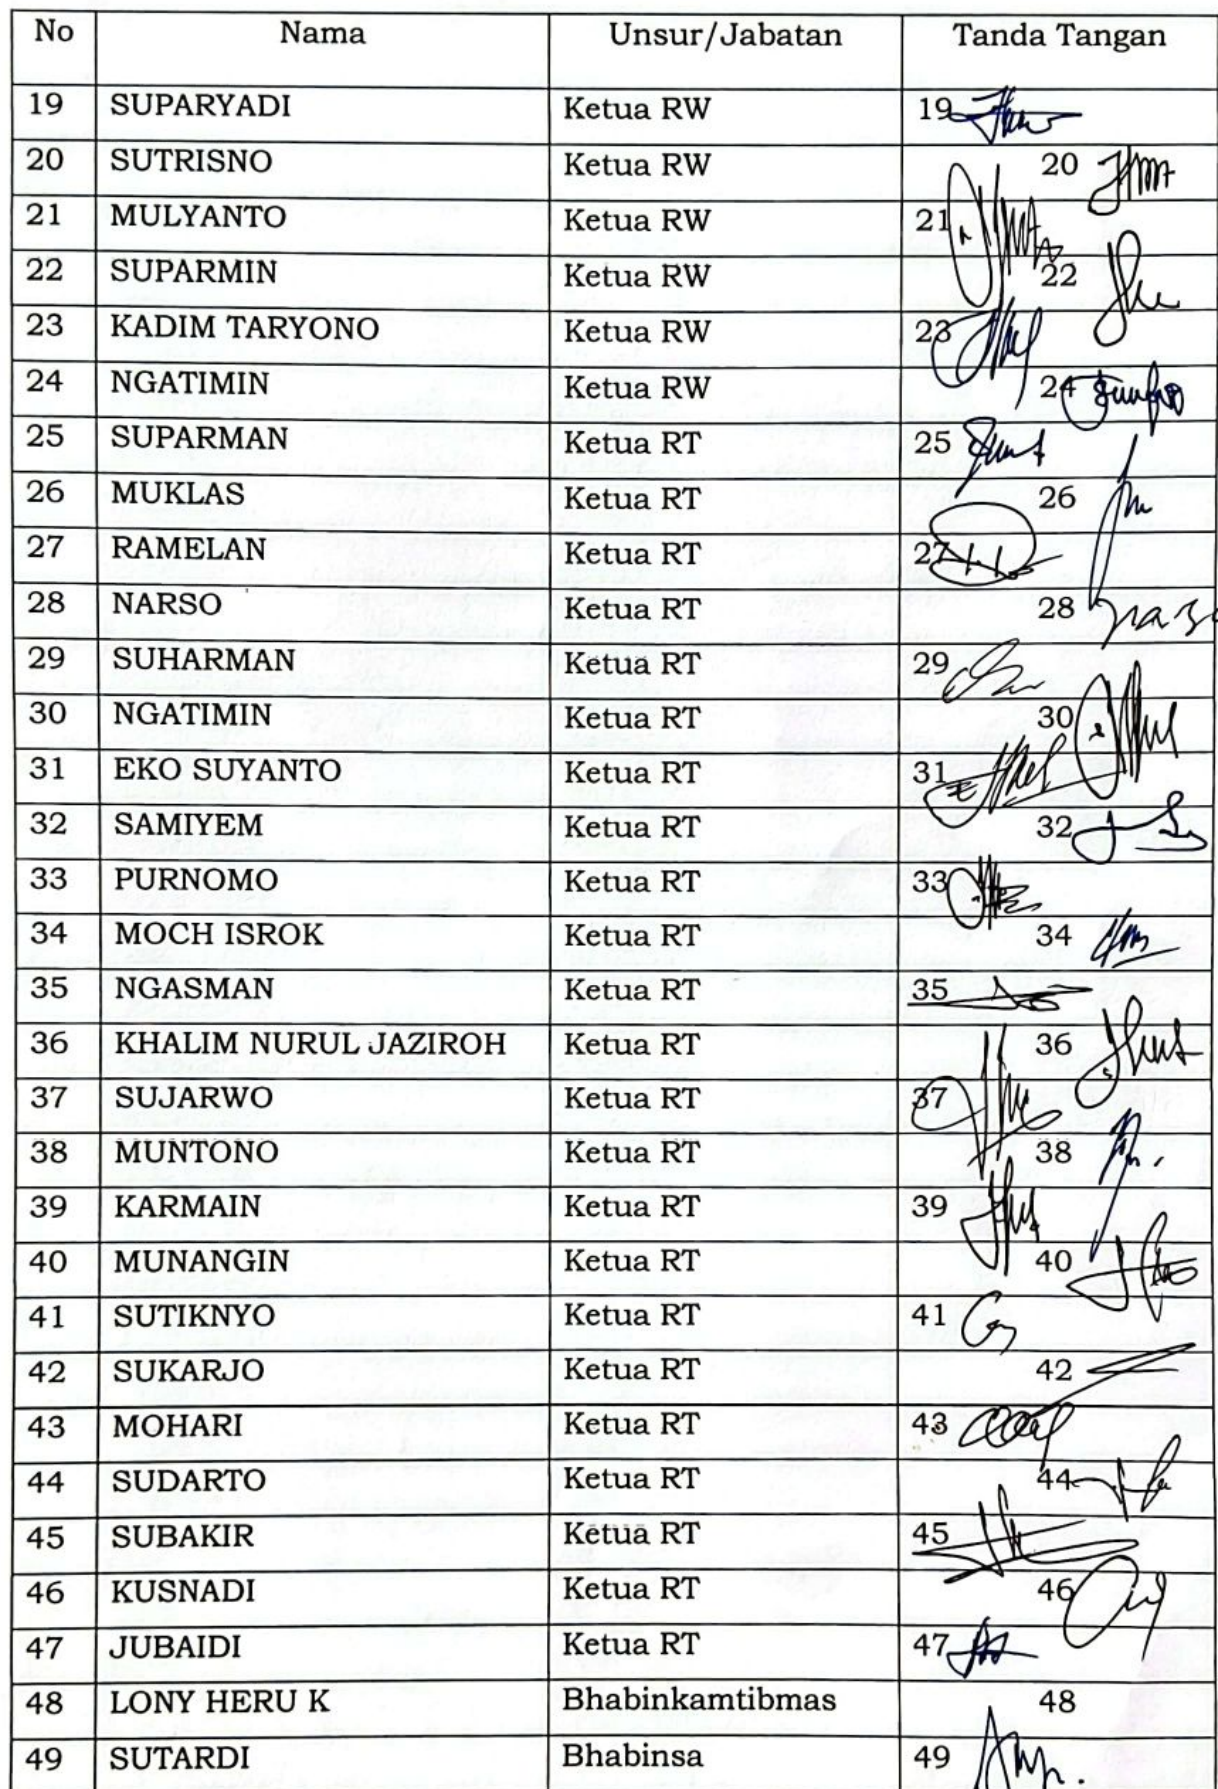 No Nama Unsur/Jabatan Tanda Tangan
19 SUPARYADI Ketua RW 19
20 SUTRISNO Ketua RW 20
21 MULYANTO Ketua RW 21
22 SUPARMIN Ketua RW 22
23 KADIM TARYONO Ketua RW 23
24 NGATIMIN Ketua RW 24
25 SUPARMAN Ketua RT 25
26 MUKLAS Ketua RT 26
27 RAMELAN Ketua RT 27
28 NARSO Ketua RT 28
29 SUHARMAN Ketua RT 29
30 NGATIMIN Ketua RT 30
31 EKO SUYANTO Ketua RT 31
32 SAMIYEM Ketua RT 32
33 PURNOMO Ketua RT 33
34 MOCH ISROK Ketua RT 34
35 NGASMAN Ketua RT 35
36 KHALIM NURUL JAZIROH Ketua RT 36
37 SUJARWO Ketua RT 37
38 MUNTONO Ketua RT 38
39 KARMAIN Ketua RT 39
40 MUNANGIN Ketua RT 40
41 SUTIKNYO Ketua RT 41
42 SUKARJO Ketua RT 42
43 MOHARI Ketua RT 43
44 SUDARTO Ketua RT 44
45 SUBAKIR Ketua RT 45
46 KUSNADI Ketua RT 46
47 JUBAIDI Ketua RT 47
48 LONY HERU K Bhabinkamtibmas 48
49 SUTARDI Bhabinsa 49